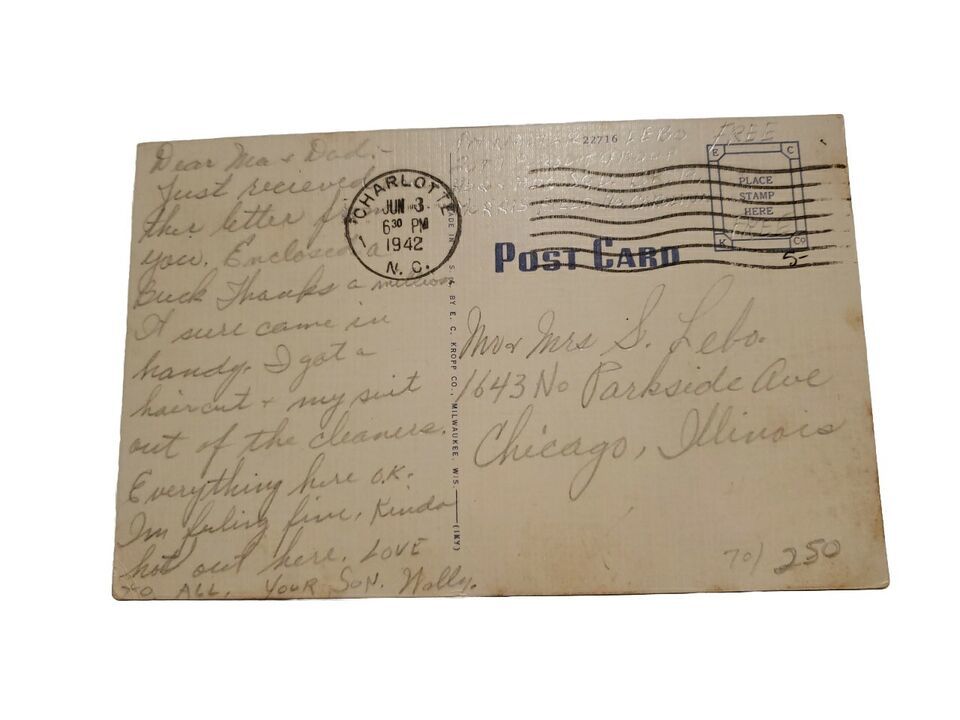 Dear Ma + Dad,-
Just recieved
ther letter from
you. Enclosed a
Buck Thanks a million
It sure came in
handy. I got a
haircut + my suit
out of the cleaners.
Everything here O.K.
Im feeling fine, Kinda
hot out here. LOVE
TO ALL, YOUR SON. Wally.
CHARLOTTE
1
JUN 3
6 30 PM
1942
N. C.
MADE IN U. S. A. BY E. C. KROPP CO., MILWAUKEE, WIS. (INY)
22716
LEBO
FREE
E C
PLACE
STAMP
HERE
FREE
K Co
5-
POST CARD
Mr + Mrs S. Lebo.
1643 No Parkside Ave
Chicago, Illinois
70/ 250